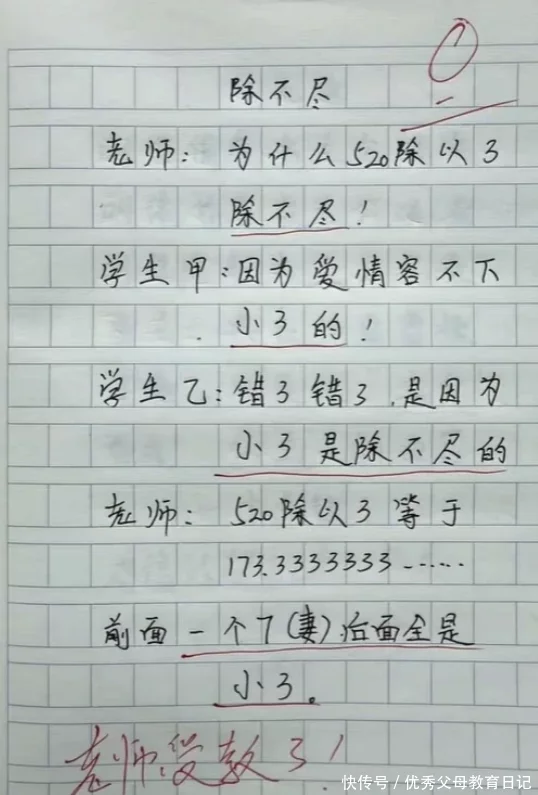 除不尽
老师:为什么520除以3
除不尽!
学生甲:因为爱情容不下
小3的!
学生乙:错3错3,是因为
小3是除不尽的
老师:520除以3等于
173.3333333……
前面一个7(妻)后面全是
小3。
老师受教了!
快传号/优秀父母教育日记